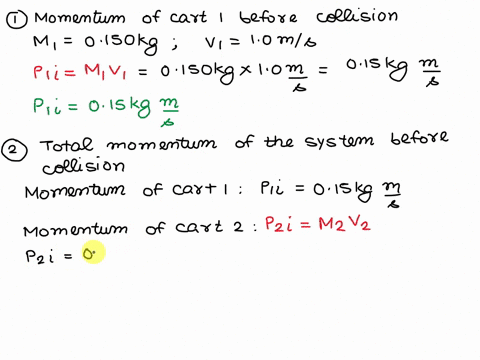 ① Momentum of cart 1 before collision
M₁ = 0.150kg ; V₁ = 1.0 m/s
P₁i = M₁V₁ = 0.150kg × 1.0 m/s = 0.15kg m/s
P₁i = 0.15kg m/s
② Total momentum of the system before
collision
Momentum of cart 1 : P₁i = 0.15kg m/s
Momentum of cart 2 : P₂i = M₂V₂
P₂i = 0.